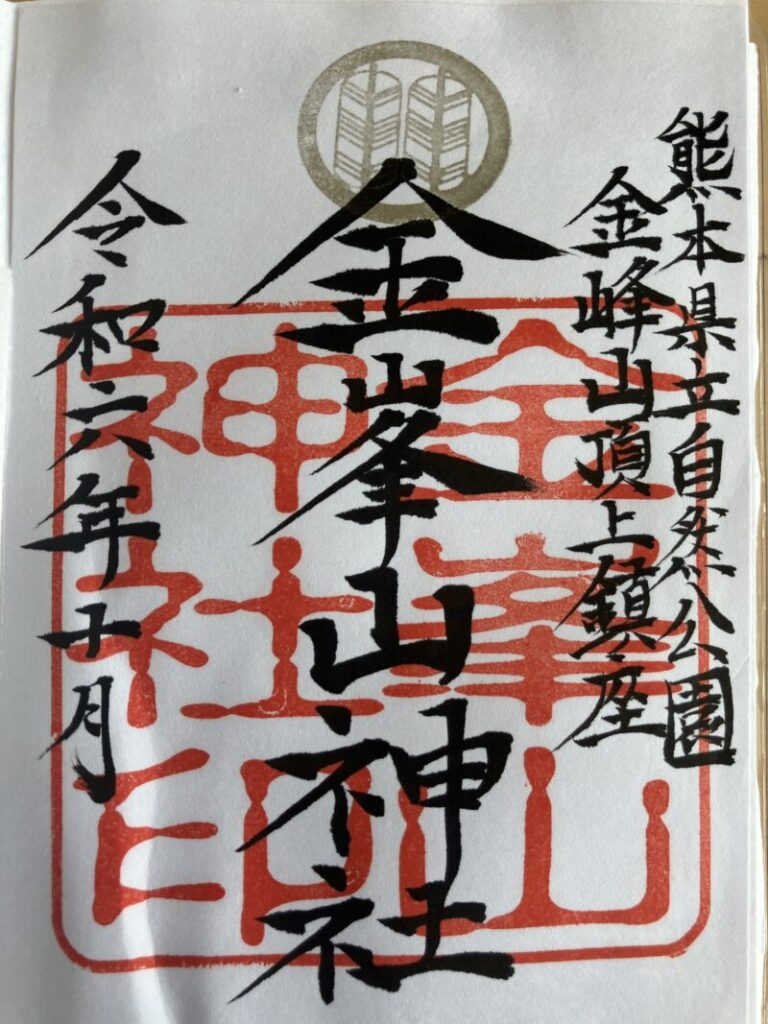 熊本県立自然公園
金峰山頂上鎮座
金峯山神社
令和六年十月
金峯山
神社印